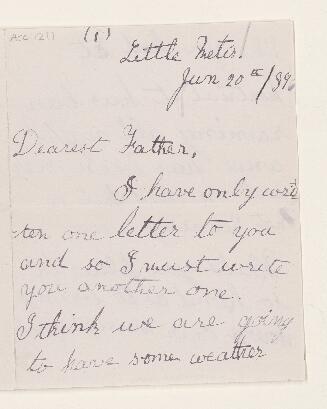 Acc 1211
(1)
Little Metis.
Jun 20th/89.
Dearest Father,
I have only writ
-ten one letter to you
and so I must write
you another one.
I think we are going
to have some weather